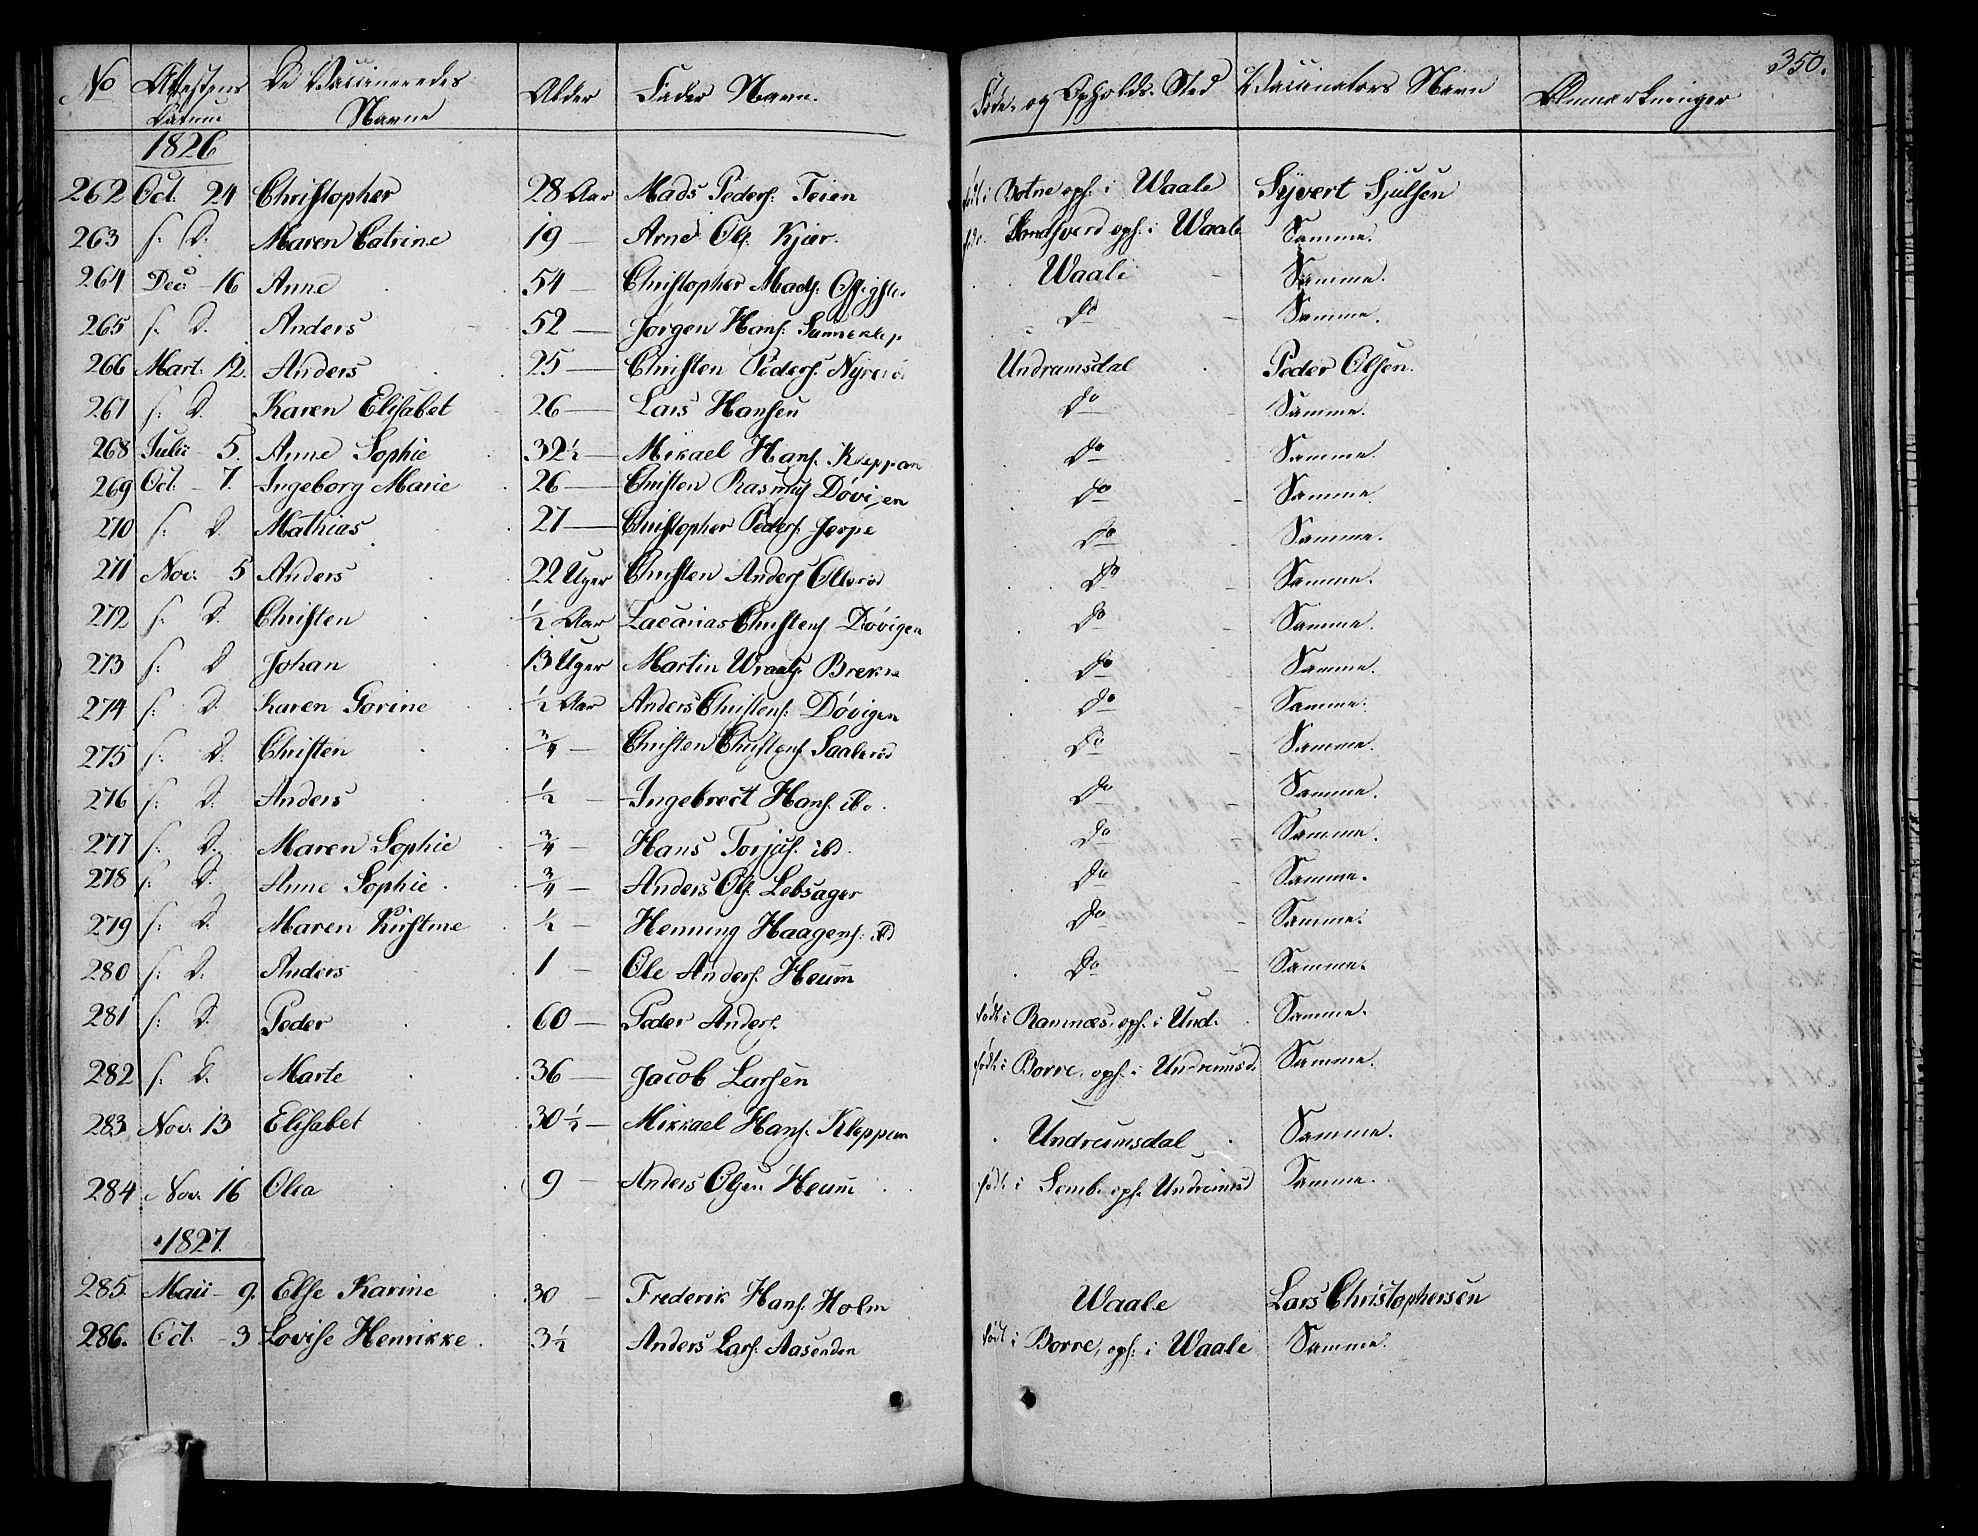 350.
No Attestens Datum De Vaccineredes Navne Alder Fader Navn. Føde- og Opholds-Sted Vaccinators Navn Anmærkninger
1826
262 Oct. 24 Christopher 28 Aar Mads Peders. Teien født i Botne oph. i Waale Syvert Sjulsen
263 s. D. Maren Catrine 19 — Arne Ols. Kjær. oph. i Waale Samme.
264 Dec - 16 Anne 54 — Christopher Mads. Waale Samme.
265 s. D. Anders 52 — Jørgen Hans. Do Samme.
266 Mart. 12. Anders 25 — Christen Peders. Undrumsdal Peder Olsen.
267 s. D. Karen Elisabet 26 — Lars Hansen Do Samme.
268 Julii - 5. Anne Sophie 32½ — Mikael Hans. Kleppan Do Samme.
269 Oct. - 7. Ingeborg Marie 26 — Christen Rasmus Døvigen Do Samme.
270 s. D. Mathias 27 — Christopher Peders. Jerpe Do Samme.
271 Nov. - 5 Anders 22 Uger Christen Anders. Do Samme.
272 s. D. Christen ½ Aar Zacarias Christens. Døvigen Do Samme.
273 s. D Johan 13 Uger Martin Brekke Do Samme.
274 s. D. Karen Gorine ½ Aar Anders Christens. Døvigen Do Samme.
275 s. D. Christen ¾ — Christen Christens. Do Samme.
276 s. D. Anders ½ — Ingebrect Hans. ibd. Do Samme.
277 s. D. Maren Sophie ¾ — Hans Torjus. ibd. Do Samme.
278 s. D. Anne Sophie ¾ — Anders Ols. Lebsager Do Samme.
279 s. D. Maren Kirstine ½ — Henning Haagens. ibd Do Samme.
280 s. D. Anders 1 — Ole Anders. Heum Do Samme.
281 s. D. Peder 60 — Peder Anders. født i Ramnæs, oph. i Und. Samme.
282 s. D. Marte 36 — Jacob Larsen født i Borre, oph. i Undrumsd. Samme.
283 Nov. 13 Elisabet 30½ — Mikkael Hans. Kleppan Undrumsdal Samme.
284 Nov. 16 Olea 9 — Anders Olsen Heum født i Semb. oph. Undrumsd Samme.
1827.
285. Maii - 9. Else Karine 30 — Frederik Hans. Holm Waale Lars Christophersen
286. Oct. - 3 Lovise Henrikke 3½ Anders Lars. Aasenden født i Borre, oph. i Waale Samme.